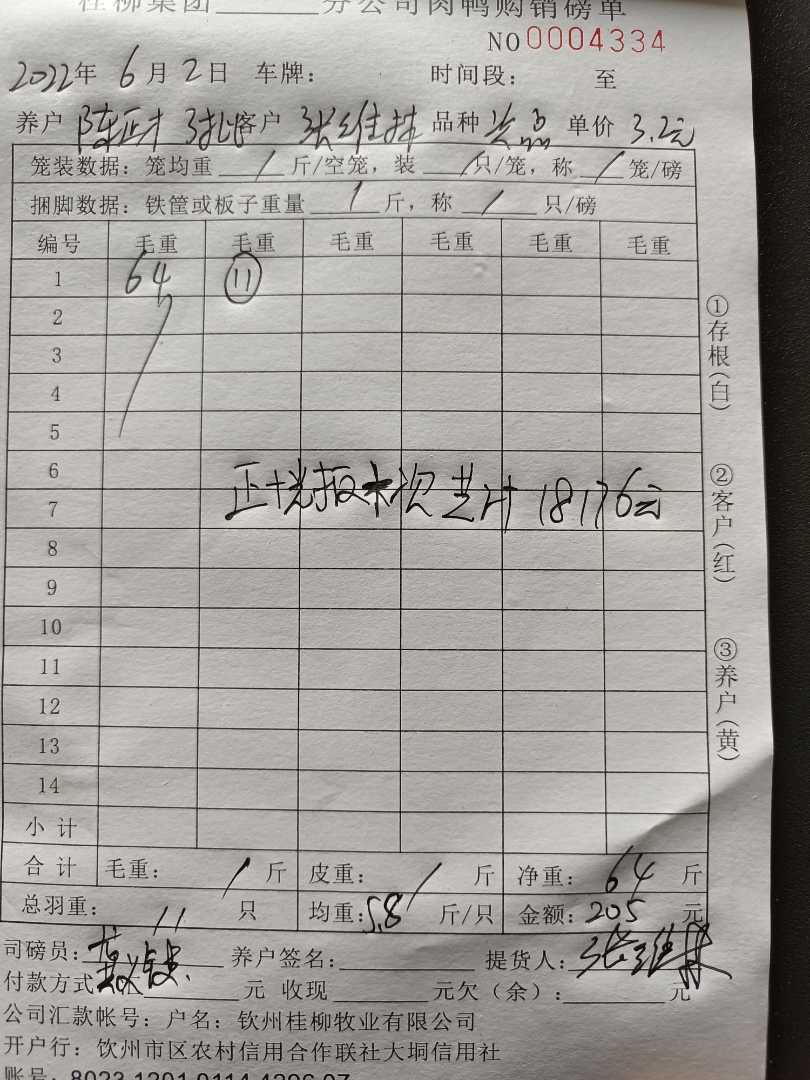 桂柳集团______分公司肉鸭购销磅单
NO 0004334
2022年 6月2日 车牌: 时间段: 至
养户 陈正才 客户 张维林 品种 次品 单价 3.2元
笼装数据: 笼均重 / 斤/空笼, 装 / 只/笼, 称 / 笼/磅
捆脚数据: 铁筐或板子重量 / 斤, 称 / 只/磅
编号 毛重 毛重 毛重 毛重 毛重 毛重
1 64 ⑪
2
3
4
5
6
7
正 次 共计 18176元
8
9
10
11
12
13
14
小计
合计 毛重: / 斤 皮重: / 斤 净重: 64 斤
总羽重: 11 只 均重: 5.8 斤/只 金额: 205 元
司磅员: 养户签名: 提货人: 张维林
付款方式 汇______元 收现______元欠(余):______元
公司汇款帐号: 户名: 钦州桂柳牧业有限公司
开户行: 饮州市区农村信用合作联社大垌信用社
账号: 8023 1201 0114 4296 07
①存根(白)
②客户(红)
③养户(黄)